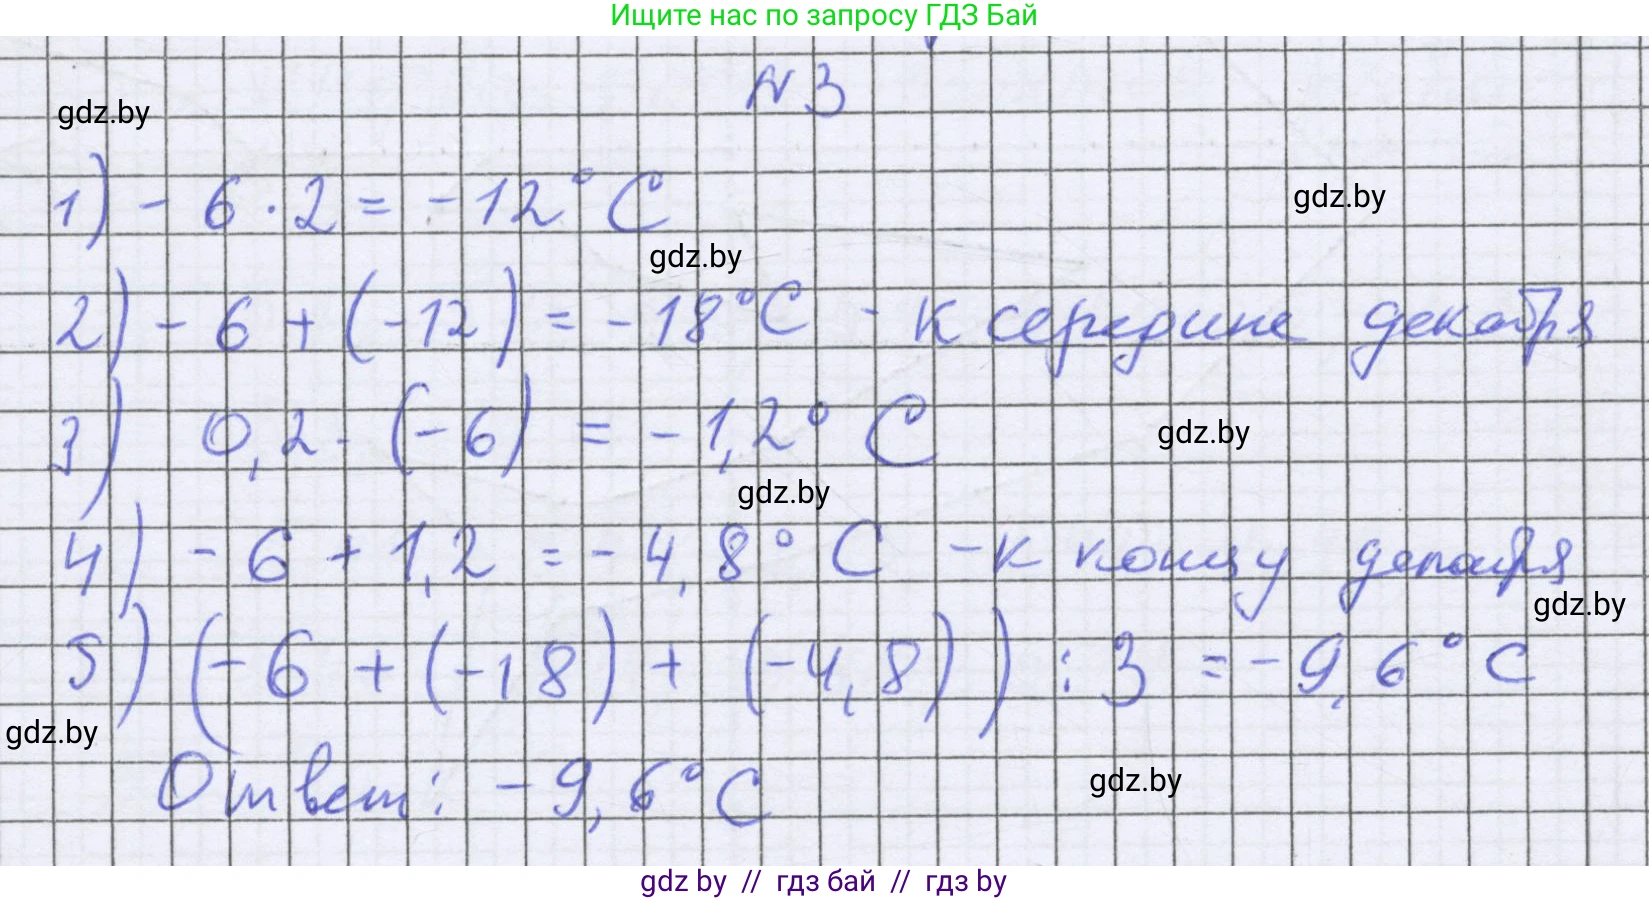 Ищите нас по запросу ГДЗ Бай
N 3
gdz.by
1) - 6 · 2 = -12° C
gdz.by
gdz.by
2) - 6 + (-12) = -18°C - к середине декабря
3) 0,2 · (-6) = -1,2° C
gdz.by
gdz.by
4) - 6 + 1,2 = - 4,8° C - к концу декабря
gdz.by
5) (-6 + (-18) + (-4,8)) : 3 = - 9,6° C
gdz.by
Ответ: - 9,6° C
gdz.by
gdz by // гдз бай // гдз by